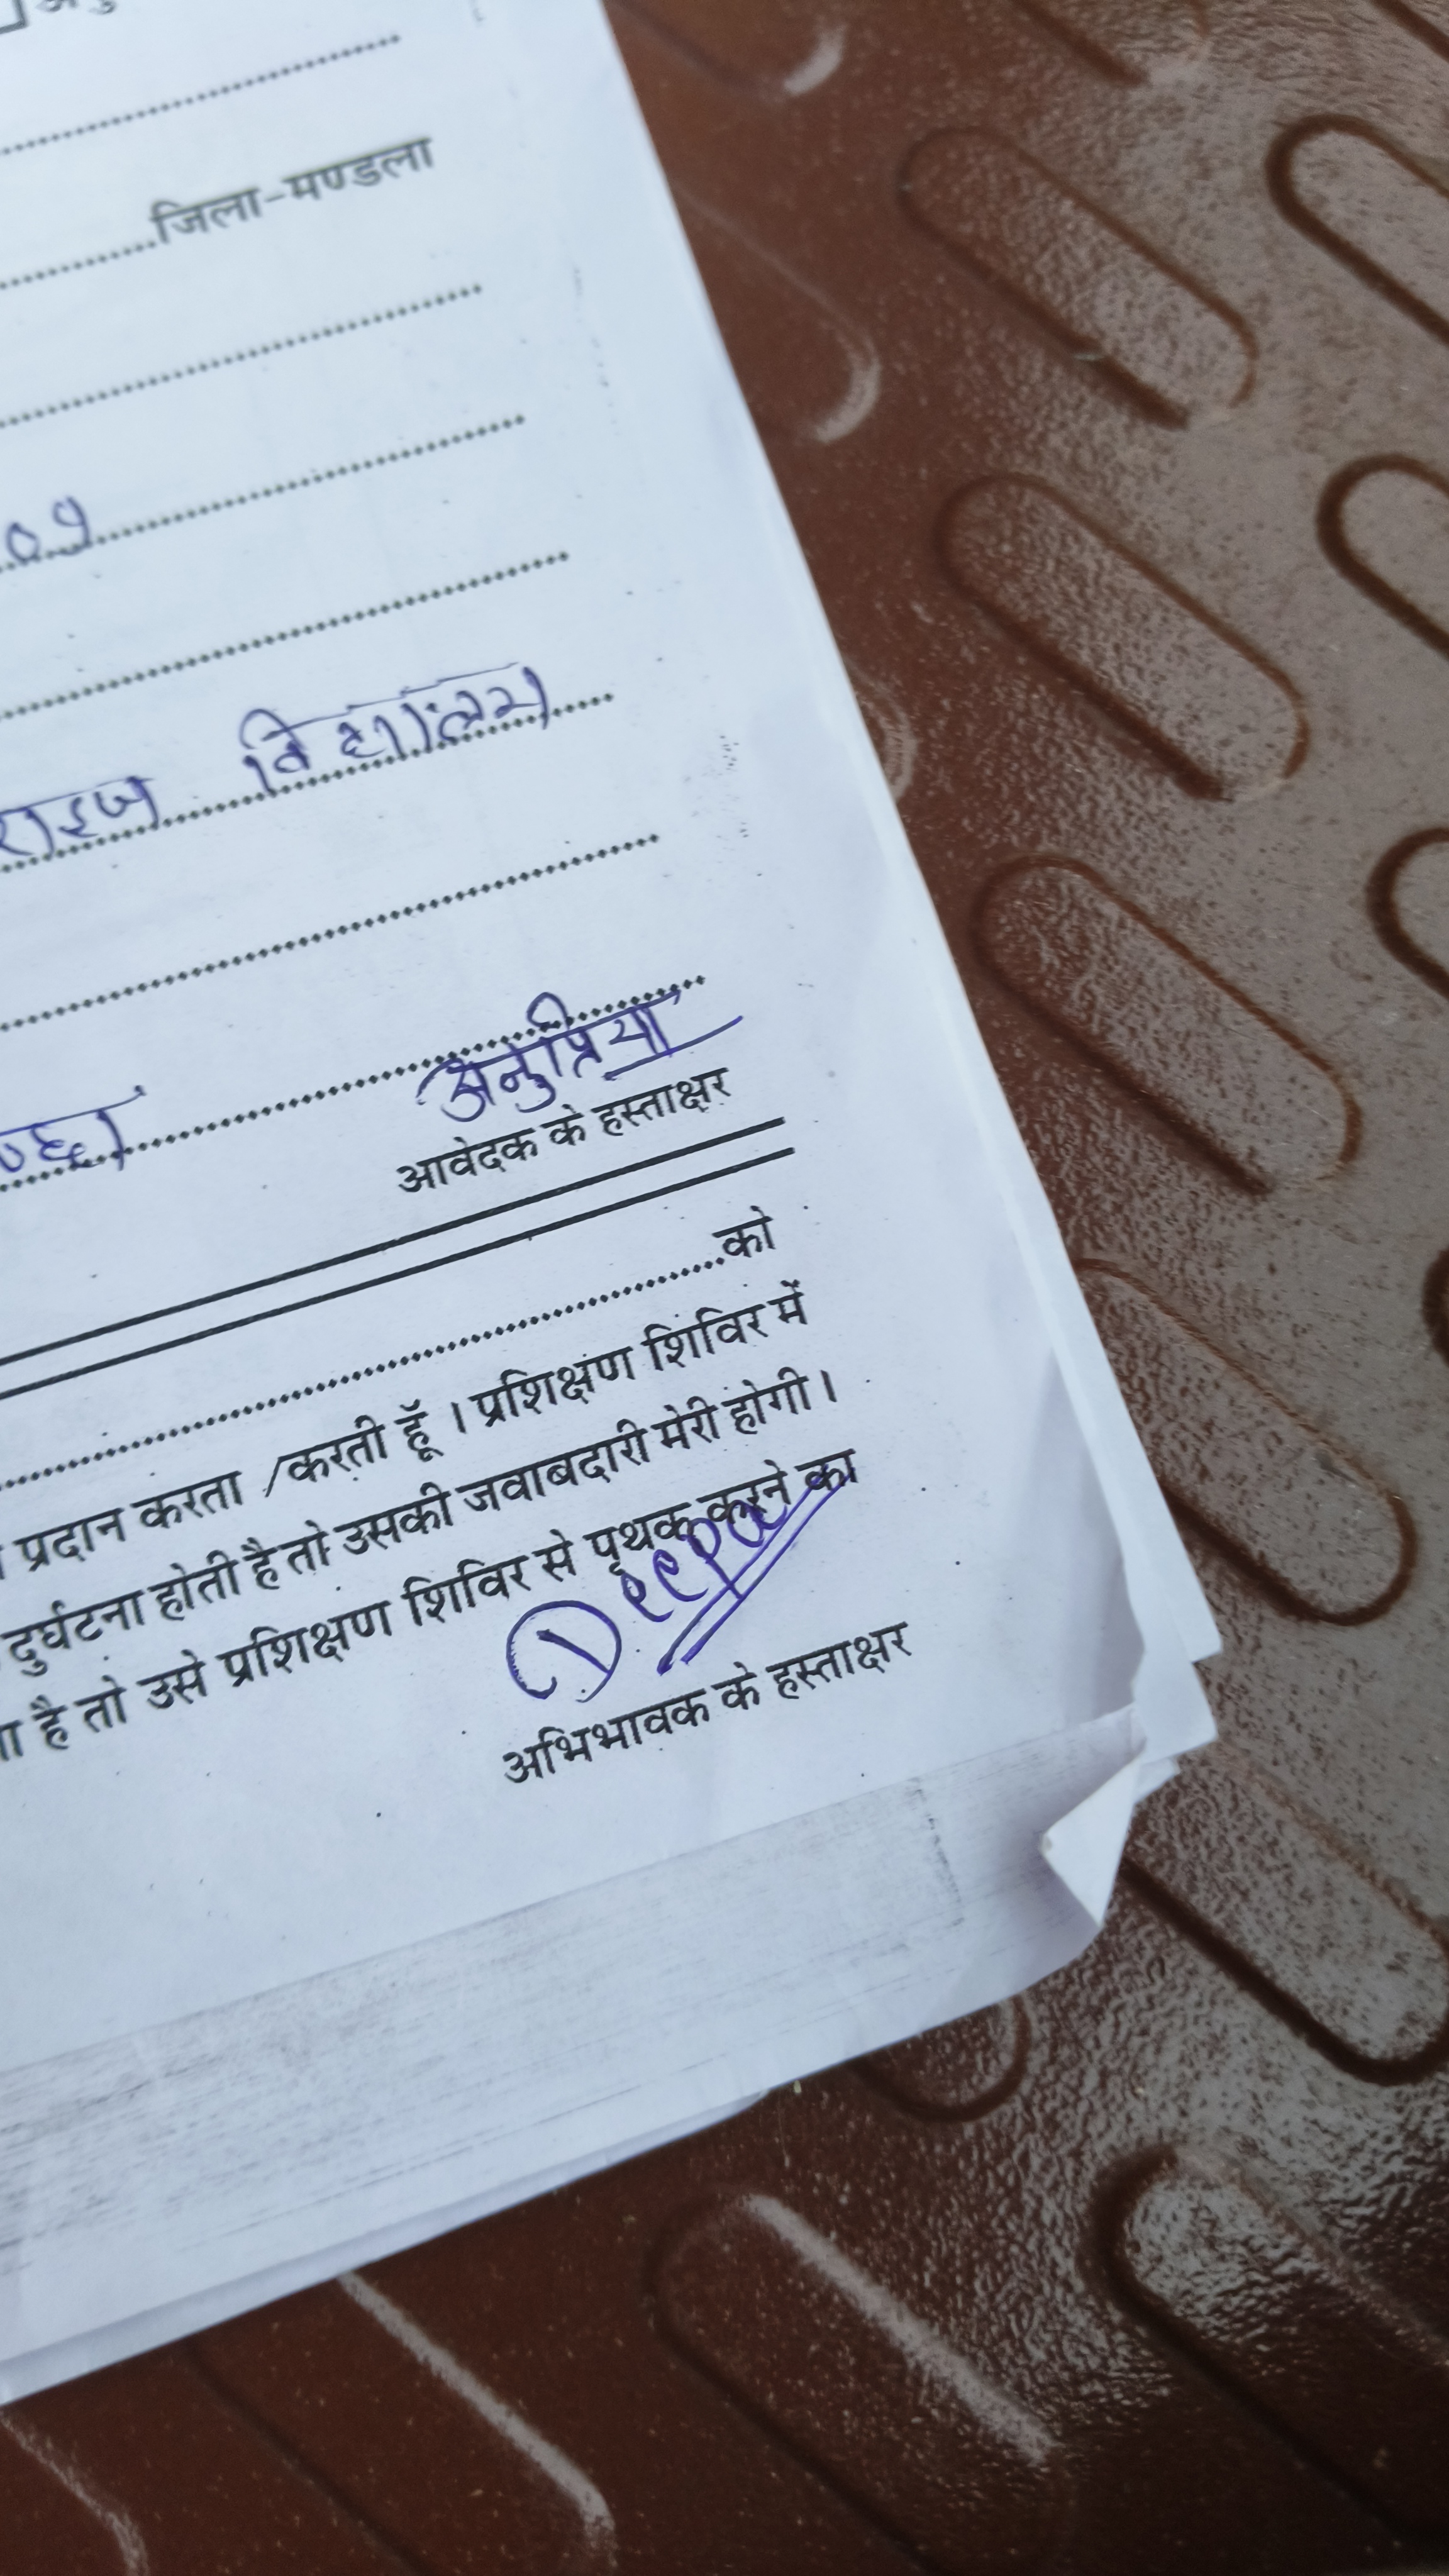 जिला-मण्डला
09
राइज विद्यालय
अनुप्रिया
आवेदक के हस्ताक्षर
को
प्रदान करता /करती हूँ । प्रशिक्षण शिविर में
दुर्घटना होती है तो उसकी जवाबदारी मेरी होगी ।
है तो उसे प्रशिक्षण शिविर से पृथक करने का
Deepa
अभिभावक के हस्ताक्षर